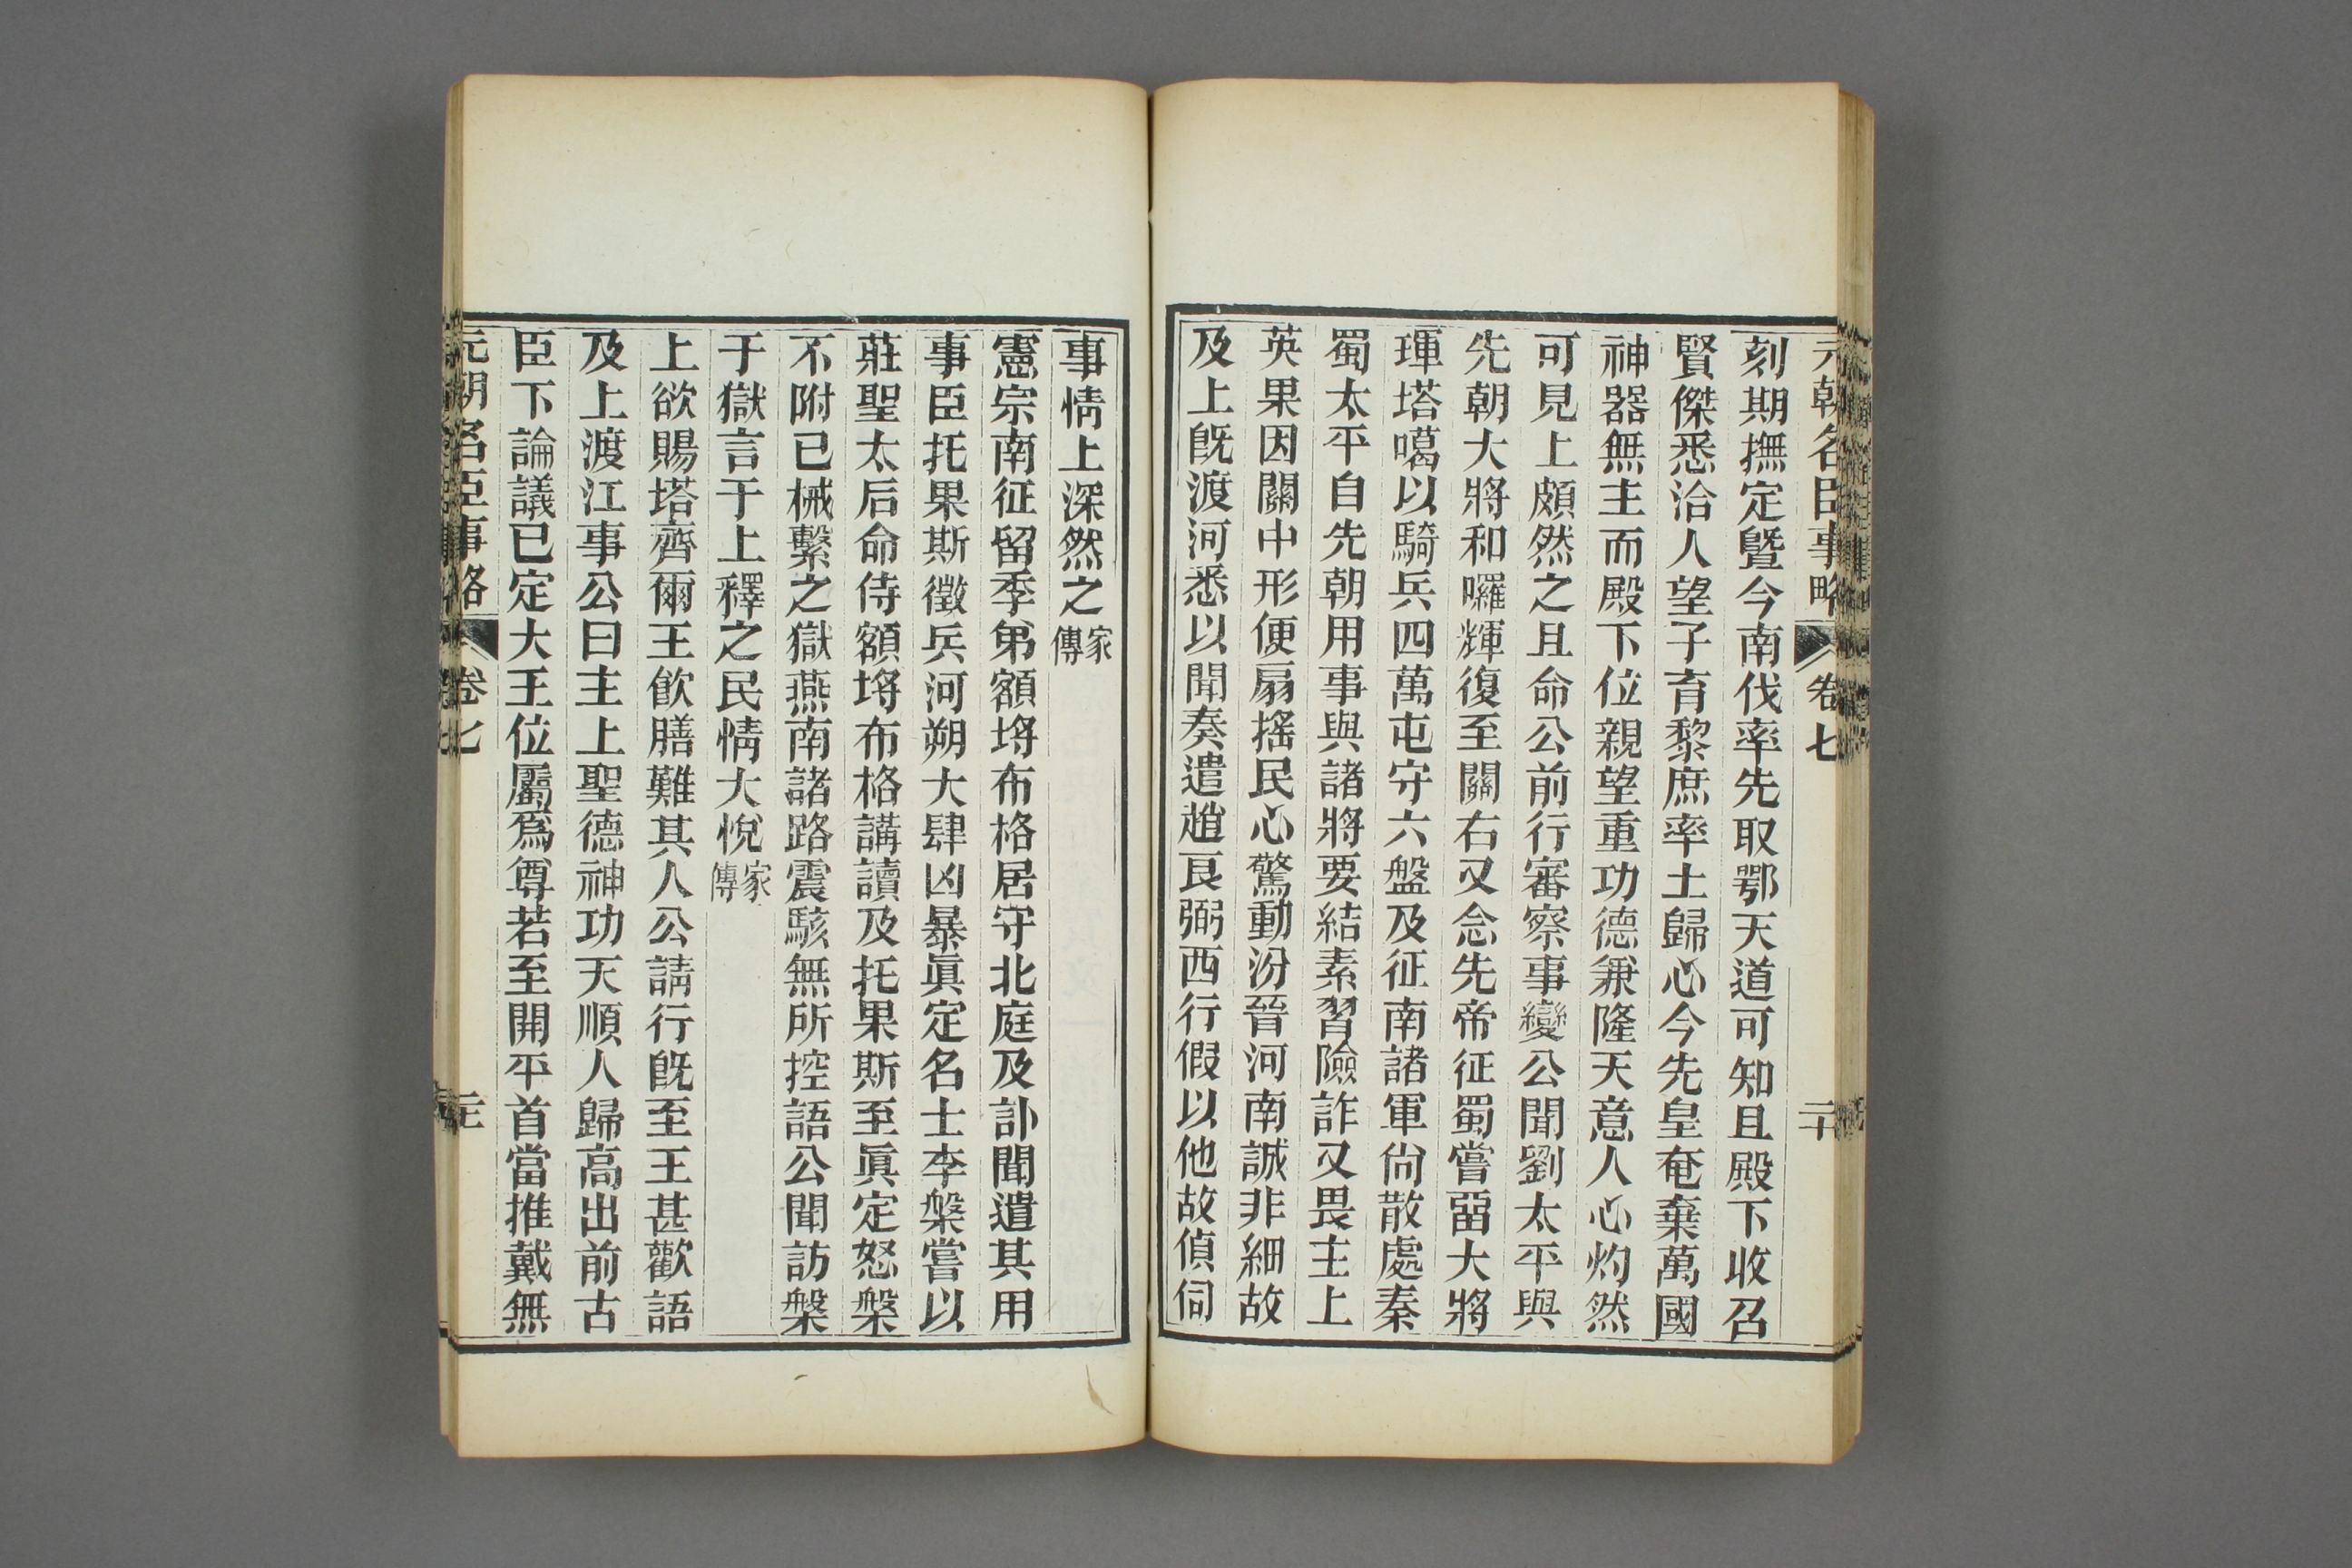 元朝名臣事略 卷七 二十
刻期撫定曁今南伐率先取鄂天道可知且殿下收召
賢傑悉洽人望子育黎庶率土歸心今先皇奄棄萬國
神器無主而殿下位親望重功德兼隆天意人心灼然
可見上頗然之且命公前行審察事變公聞劉太平與
先朝大將和囉輝復至關右又念先帝征蜀嘗留大將
琿塔噶以騎兵四萬屯守六盤及征南諸軍尙散處秦
蜀太平自先朝用事與諸將要結素習險詐又畏主上
英果因關中形便扇搖民心驚動汾晉河南誠非細故
及上旣渡河悉以聞奏遣趙良弼西行假以他故偵伺
事情上深然之家傳
憲宗南征留季弟額埒布格居守北庭及訃聞遣其用
事臣托果斯徵兵河朔大肆凶暴眞定名士李槃嘗以
莊聖太后命侍額埒布格講讀及托果斯至眞定怒槃
不附已械繫之獄燕南諸路震駭無所控語公聞訪槃
于獄言于上釋之民情大悅家傳
上欲賜塔齊爾王飮膳難其人公請行旣至王甚歡語
及上渡江事公曰主上聖德神功天順人歸高出前古
臣下論議已定大王位屬爲尊若至開平首當推戴無
元朝名臣事略 卷七